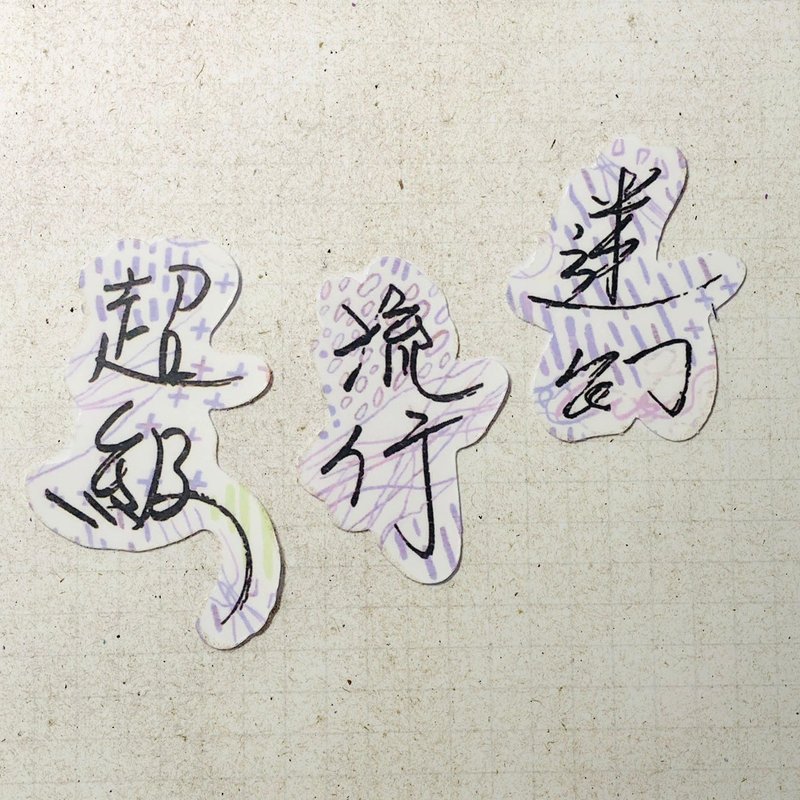 超級
流行
迷幻